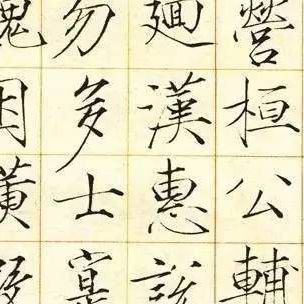 營桓公輔
廻漢惠說
勿多士寔
魏困橫